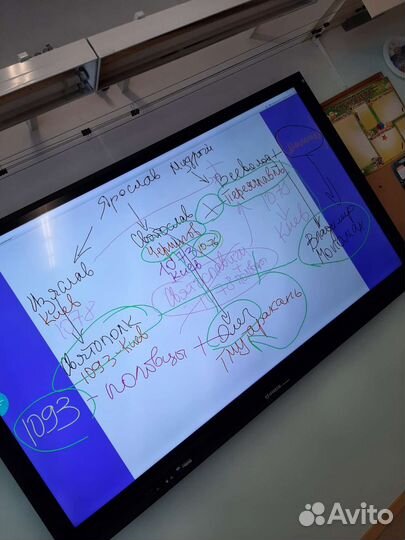 Ярослав Мудрый
Изяслав
Киев
1078
Святослав
Чернигов
1073-1076
Киев
Всеволод +
Переяславль
1078
Киев
Владимир
Мономах
Святополк
1093-Киев
1093
половцы + Олег
Тмутаракань
Avito